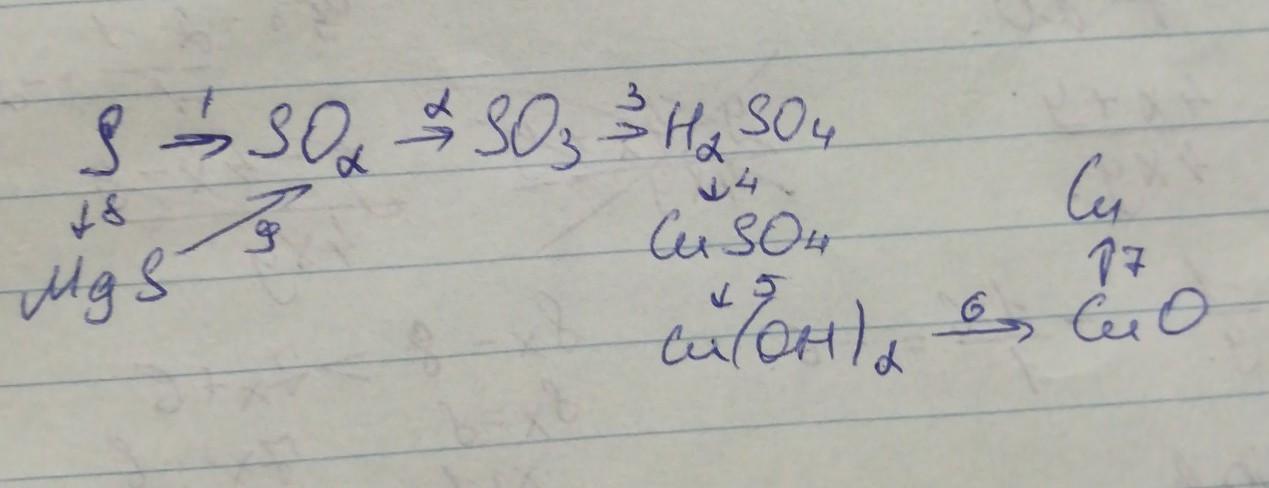 S →1 SO₂ →2 SO₃ →3 H₂SO₄
↓8 9 ↓4 Cu
MgS ↗ CuSO₄ ↑7
↓5
Cu(OH)₂ →6 CuO